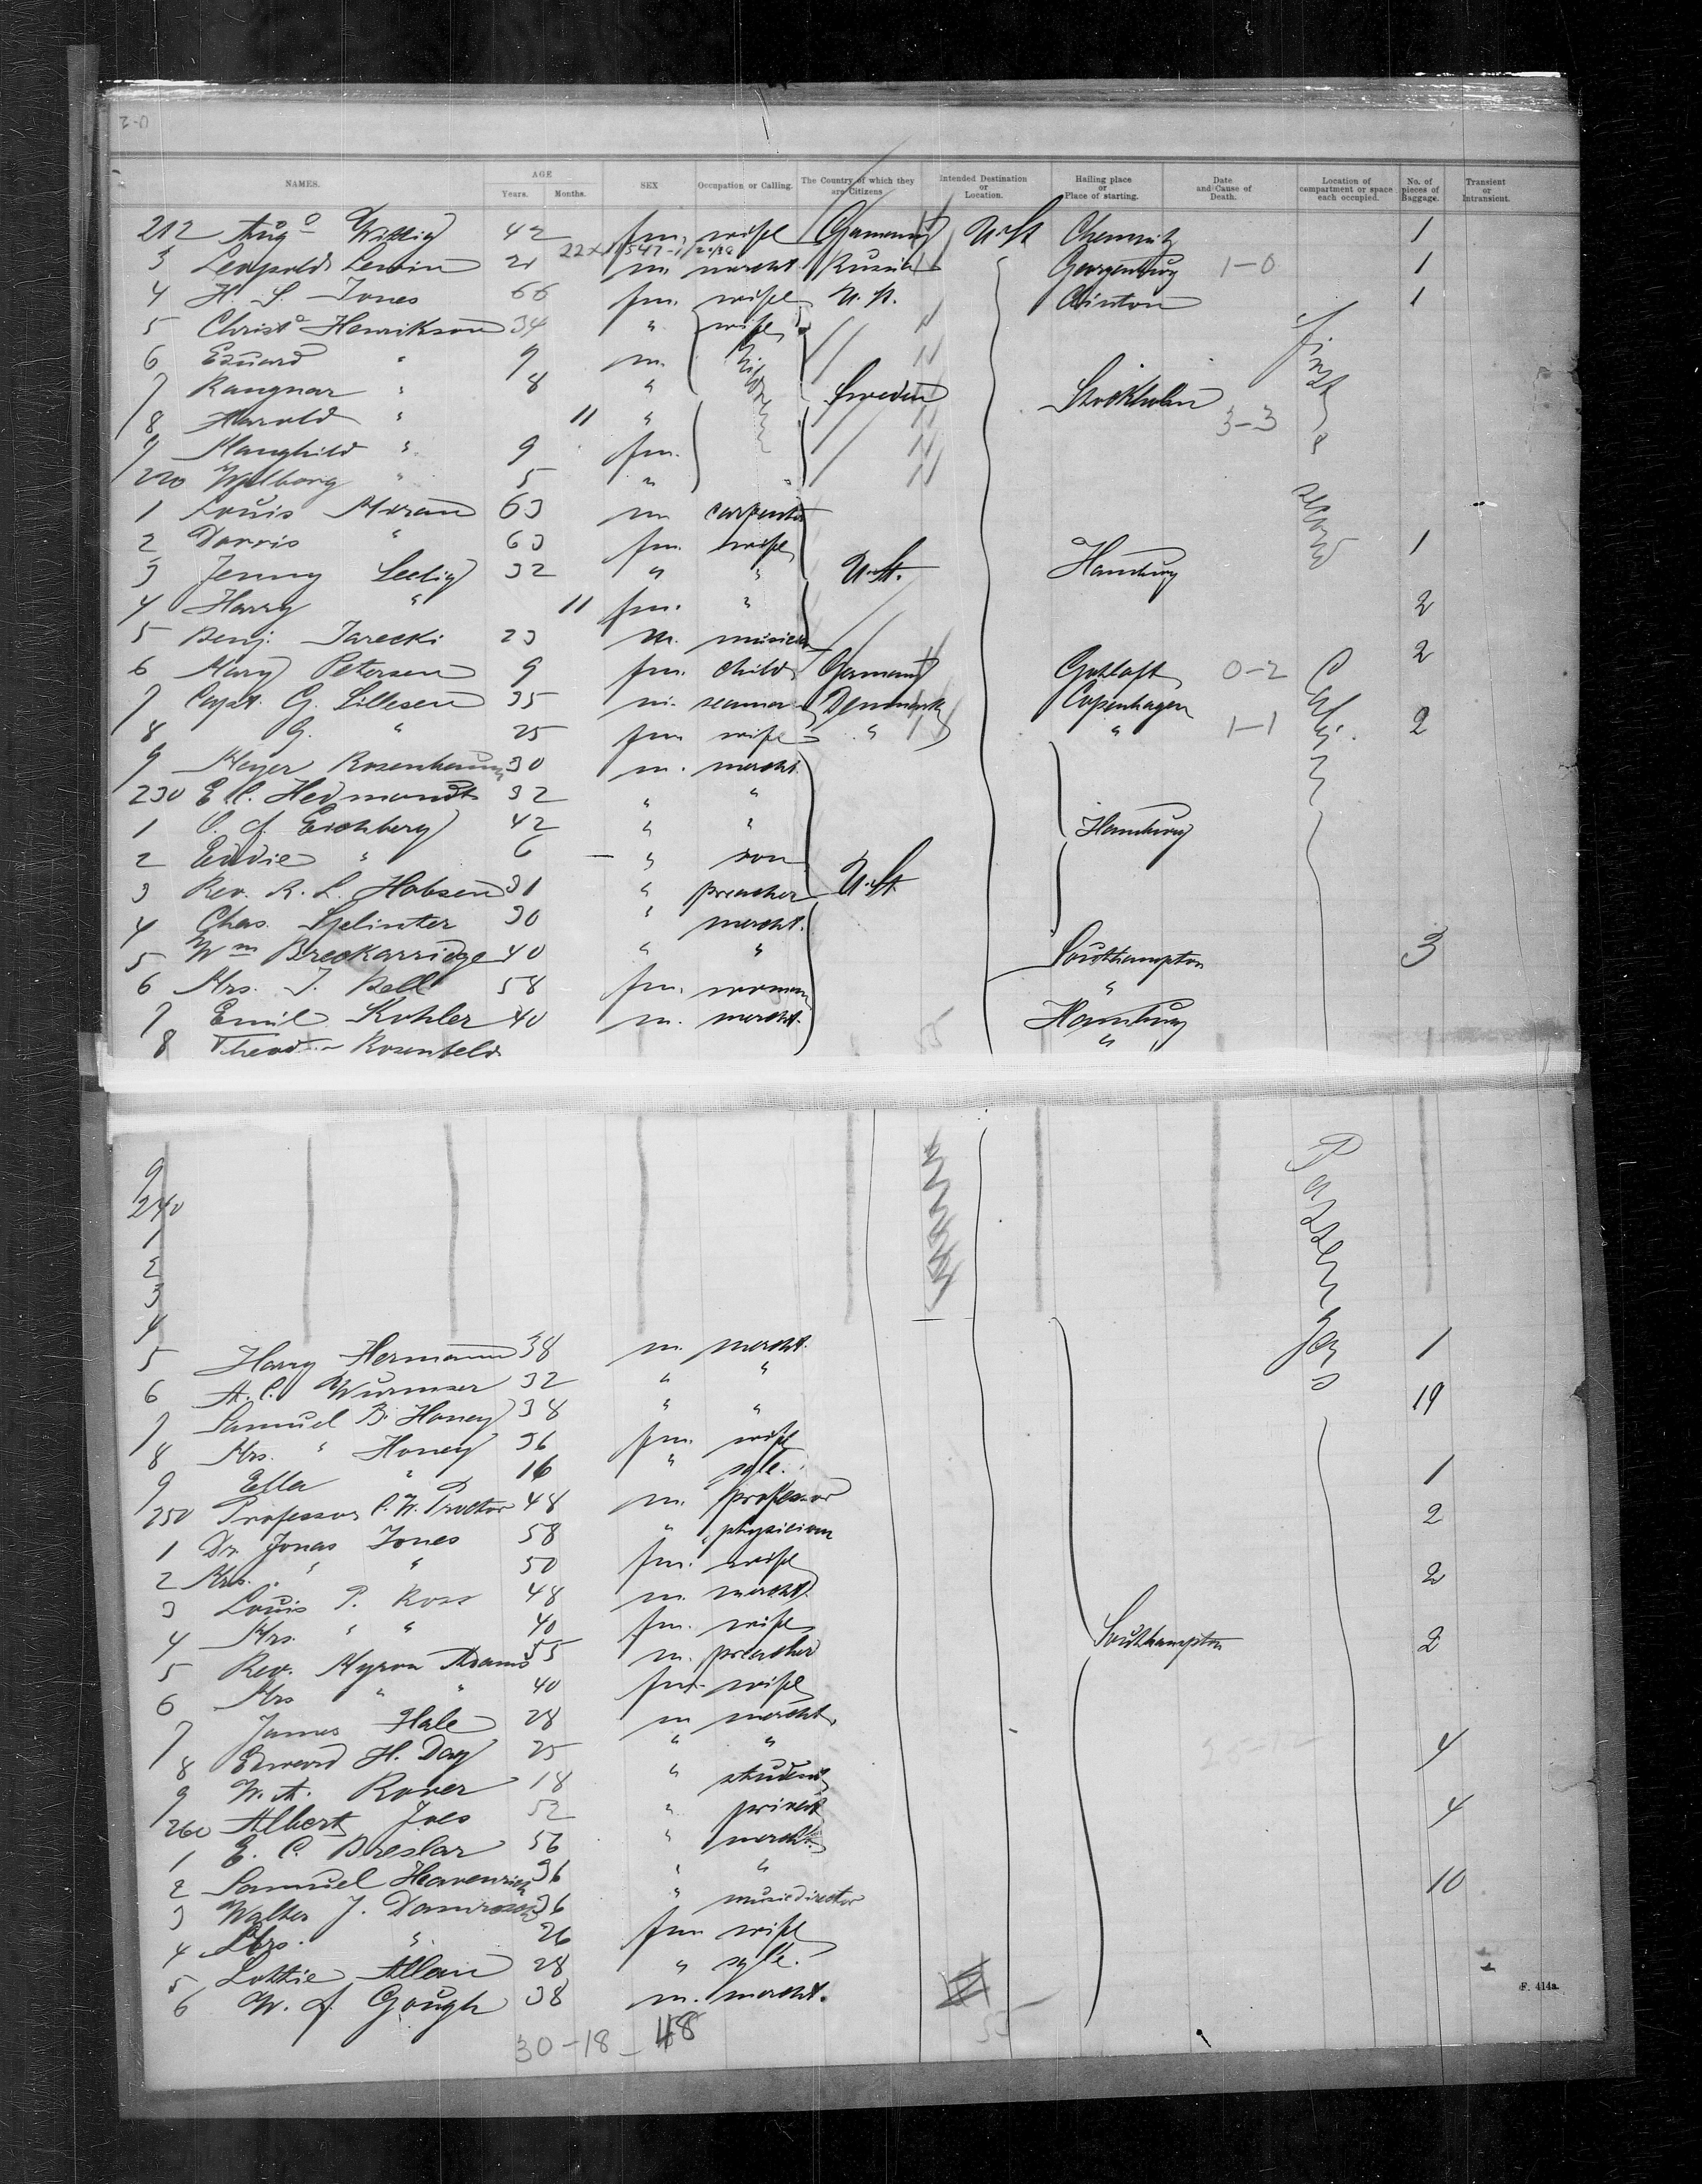 NAMES. AGE Years. Months. SEX Occupation or Calling. The Country of which they are Citizens Intended Destination or Location. Hailing place or Place of starting. Date and Cause of Death. Location of compartment or space each occupied. No. of pieces of Baggage. Transient or Intransient.
212 Aug a Wittig 42 fm. wife Germany U.St. Chemnitz 1
3 Leopold Lewin 21 m. mercht. Russia Georgenburg 1-0 1
4 H. S. Jones 66 fm. wife U.St. Clinton 1
5 Christ a Henrikson 34 " wife
6 Eduard " 9 m.
7 Rangnar " 8 " Sweden Stockholm
8 Harold " 11 " 3-3
9 Manghild " 9 fm.
220 Wilborg " 5 "
1 Louis Moran 63 m carpenter
2 Dorris " 63 fm. wife 1
3 Jenny Seelig 32 " " U.St. Hamburg
4 Harry " 11 fm. " 2
5 Benj. Jarecki 23 m. musician 2
6 Mary Petersen 9 fm. child Germany 0-2
7 Capt. G. Lillesen 35 m. seaman Denmark Copenhagen
8 G. " 25 fm wife " " 1-1 2
9 Meyer Rosenbaum 30 m. mercht.
230 E. C. Hedmondt 32 " "
1 C. J. Eichberg 42 " " Hamburg
2 Eddie " 6 " son
3 Rev. R. L. Hobson 31 " preacher U.St.
4 Chas. Splinter 30 " mercht.
5 Wm Breckarridge 40 " " Southampton 3
6 Mrs. J. Bell 58 fm. woman "
7 Emil Kohler 40 m. mercht. Hamburg
8 Theod. Rosenfeld " "
first & second Cabin Passengers
9
240
1
2
3
4
5 Harry Hermann 38 m. mercht. 1
6 A. C. Wurmser 32 " " 19
7 Samuel B. Honey 38 " "
8 Mrs. " Honey 36 fm. wife
9 Ella " 16 " sgle. 1
250 Professor C. W. Proctor 48 m. professor 2
1 Dr. Jonas Jones 58 " physician
2 Mrs. " " 50 fm. wife 2
3 Louis P. Ross 48 m. mercht.
4 Mrs. " " 40 fm. wife Southampton 2
5 Rev. Myron Adams 55 m. preacher
6 Mrs " " 40 fm. wife
7 James Hale 28 m mercht.
8 Edward H. Day 25 " " 4
9 W. A. Rover 18 " student
260 Albert Ives 52 " privat 4
1 E. C. Breslar 56 " mercht.
2 Samuel Heavenrich 36 " " 10
3 Walter J. Damrosch 36 " musicdirector
4 Mrs. " 26 fm wife
5 Lottie Allan 28 " sgle.
6 W. J. Gough 38 m. mercht.
F. 414a.
30-18- 48